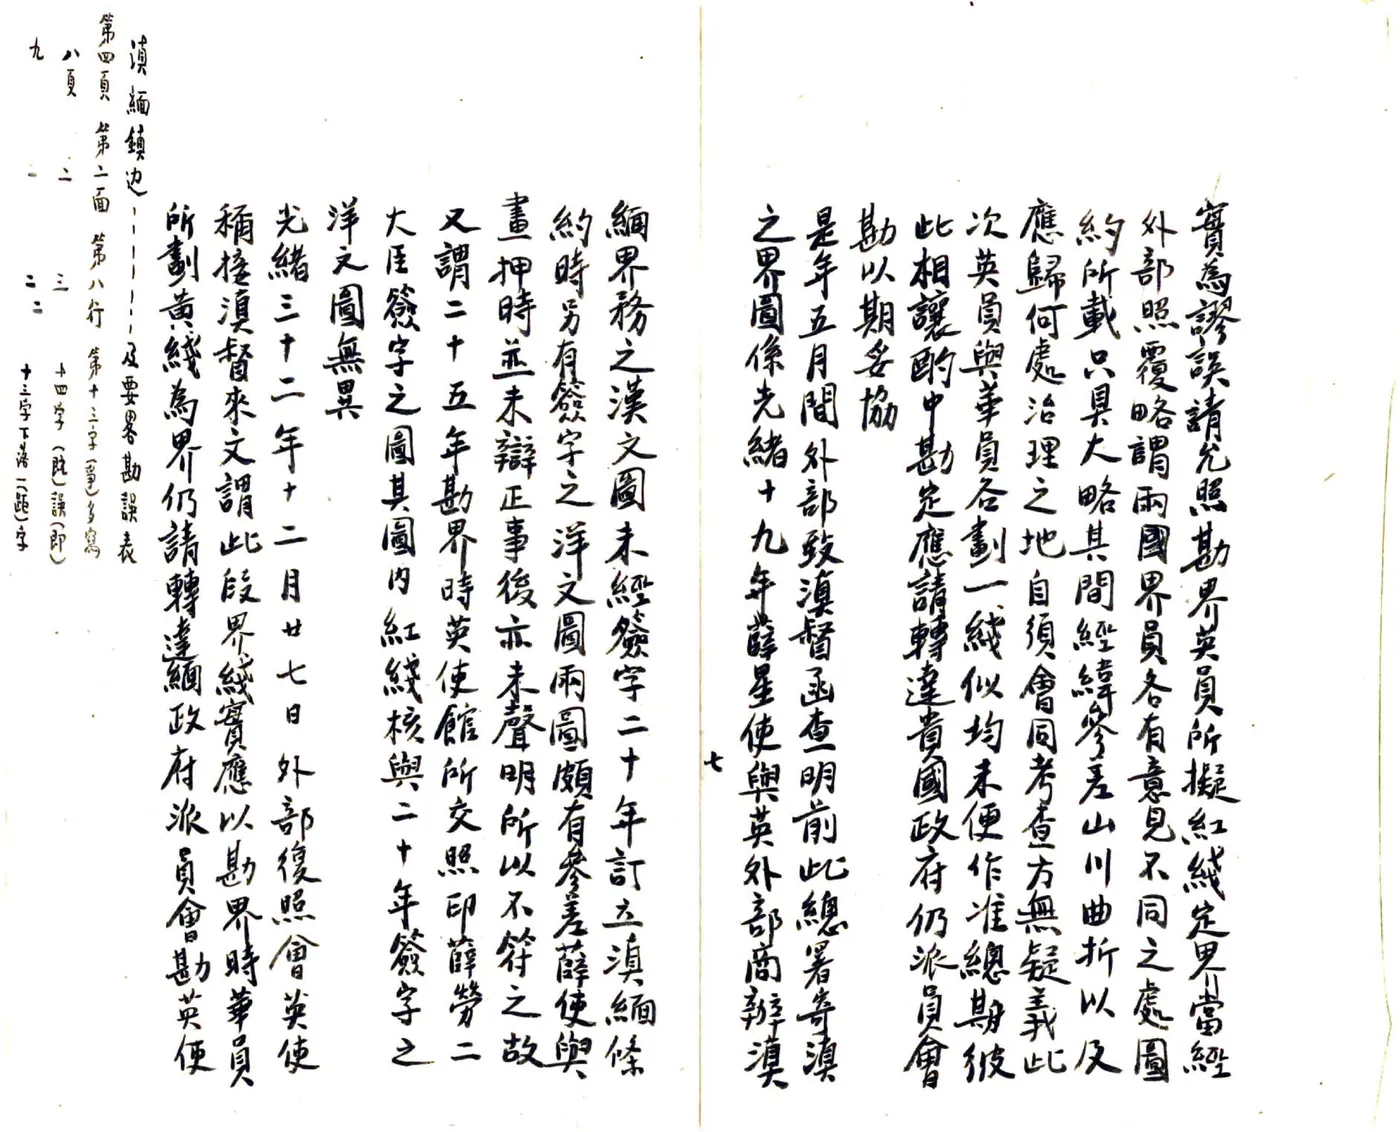 實為謬誤請允照勘界英員所擬紅綫定界當經
外部照覆略謂兩國界員各有意見不同之處圖
約所載只具大略其間經緯參差山川曲折以及
應歸何處治理之地自須會同考查方無疑義此
次英員與華員各劃一綫似均未便作准總期彼
此相讓酌中勘定應請轉達貴國政府仍派員會
勘以期妥協
是年五月間外部致滇督函查明前此總署寄滇
之界圖係光緒十九年薛星使與英外部商辦滇
七
緬界務之漢文圖未經簽字二十年訂立滇緬條
約時另有簽字之洋文圖兩圖頗有參差薛使與
畫押時並未辯正事後亦未聲明所以不符之故
又謂二十五年勘界時英使館所交照印薛勞二
大臣簽字之圖其圖內紅綫核與二十年簽字之
洋文圖無異
光緒三十二年十二月廿七日外部復照會英使
稱接滇督來文謂此段界綫實應以勘界時華員
所劃黃綫為界仍請轉達緬政府派員會勘英使
滇緬鎮边------及要畧勘誤表
第四頁 第二面 第八行 第十三字(爭)多寫
八頁 二 三 十四字(既)誤(即)
九 二 二二 十三字下落一(趣)字